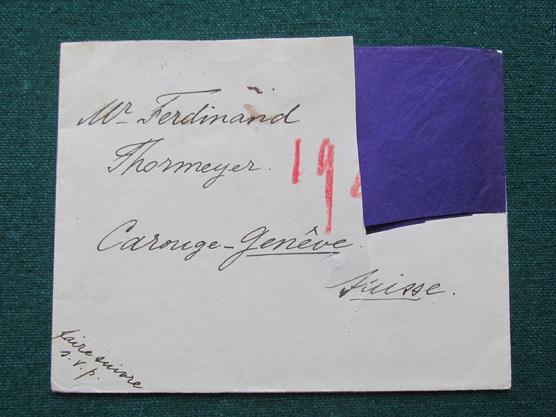 Mr Ferdinand
Thormeyer.
19
Carouge-Genève.
Suisse.
faire suivre
s. v. p.